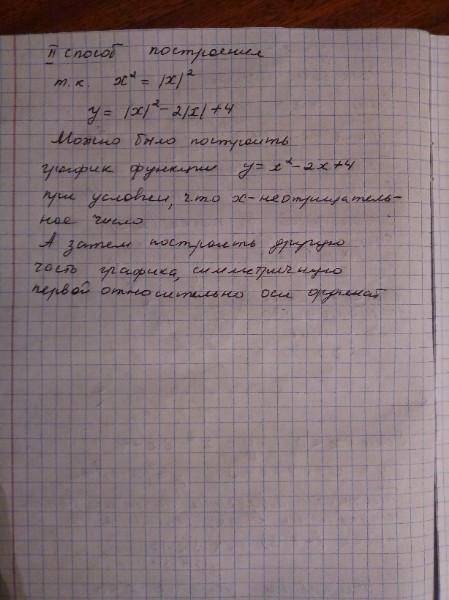 II способ построения
т.к. x² = |x|²
y = |x|² - 2|x| + 4
Можно было построить
график функции y = x² - 2x + 4
при условии, что x - неотрицатель-
ное число
А затем построить другую
часть графика, симметричную
первой относительно оси ординат